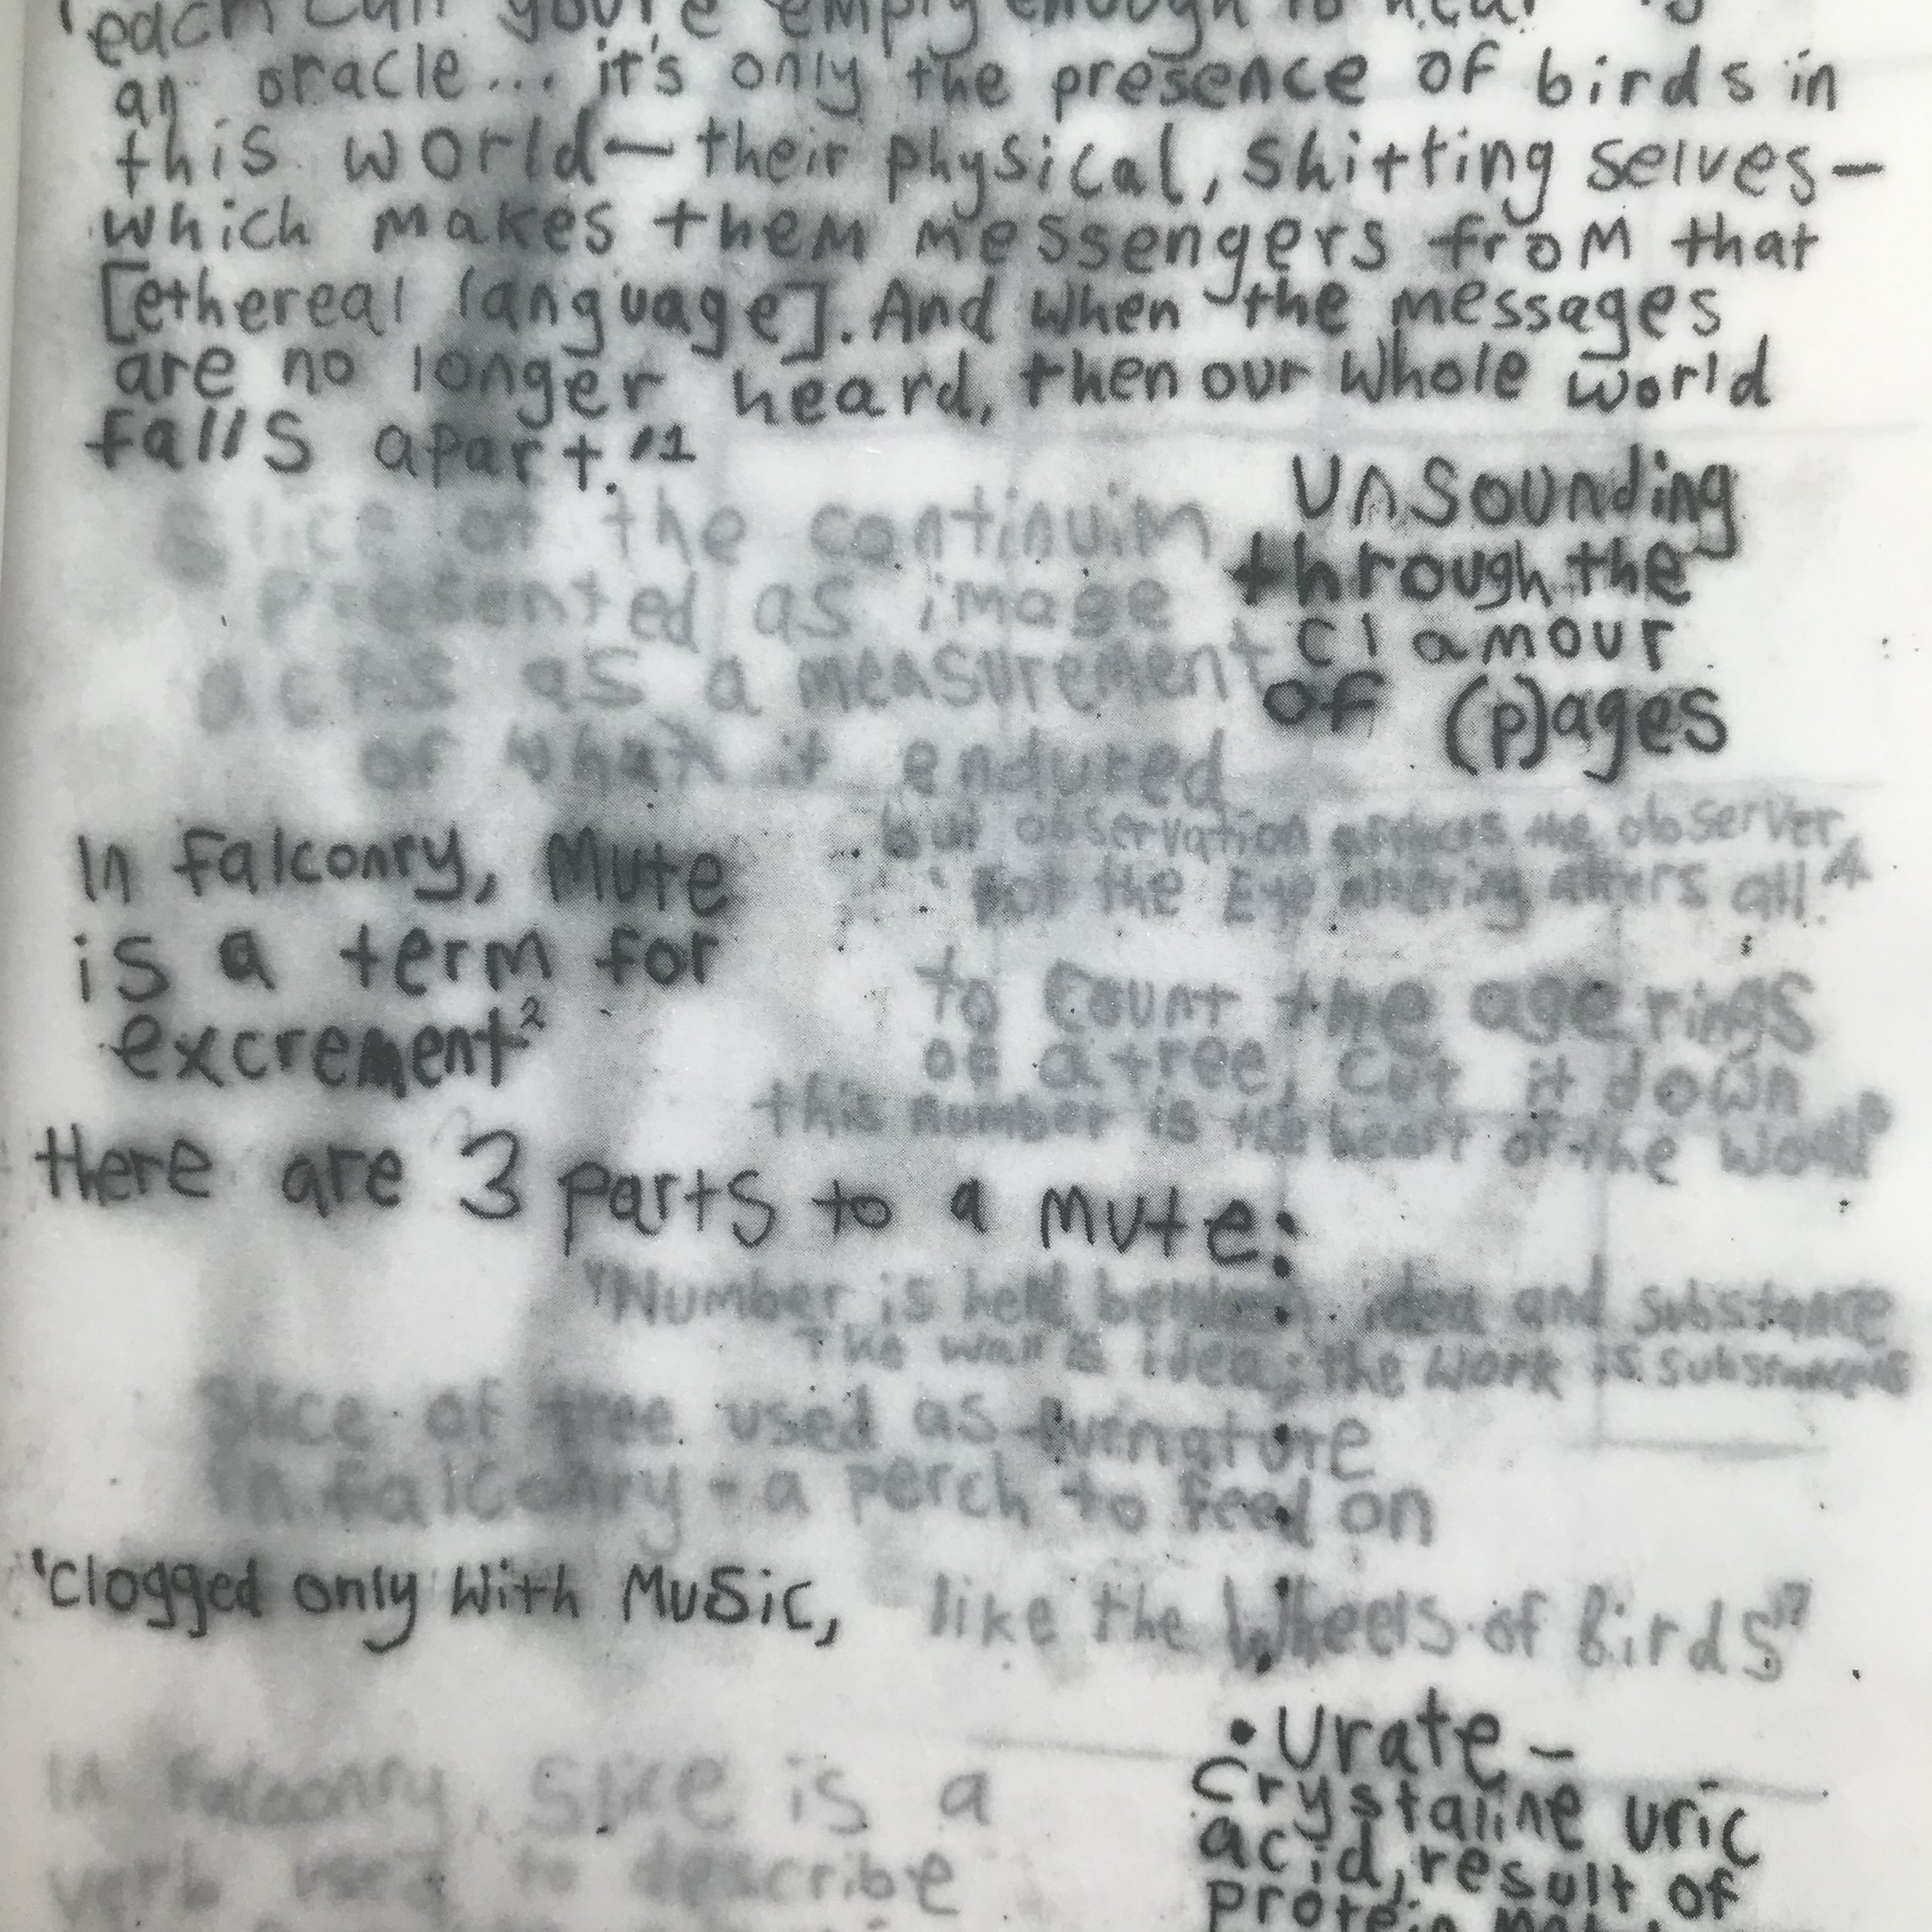 each call you're empty enough to hear is
an oracle... it's only the presence of birds in
this world — their physical, shitting selves —
which makes them messengers from that
[ethereal language]. And when the messages
are no longer heard, then our whole world
falls apart."1
Unsounding
through the
clamour
of (p)ages
Slice of the continuim
presented as image
acts as a measurement
of what it endured
but observation the observer,
but the Eye altering alters all.4
In falconry, Mute
is a term for
excrement2
to count the age rings
of a tree, cut it down
this number is the heart of the
there are 3 parts to a mute:
"Number is held between idea and substance
The wall is idea; the work is
Slice of tree used as furnature
in falconry - a perch to feed on
'Clogged only with Music, like the Wheels of Birds'7
• Urate -
Crystaline uric
acid, result of
In falconry, Slice is a
verb used to describe